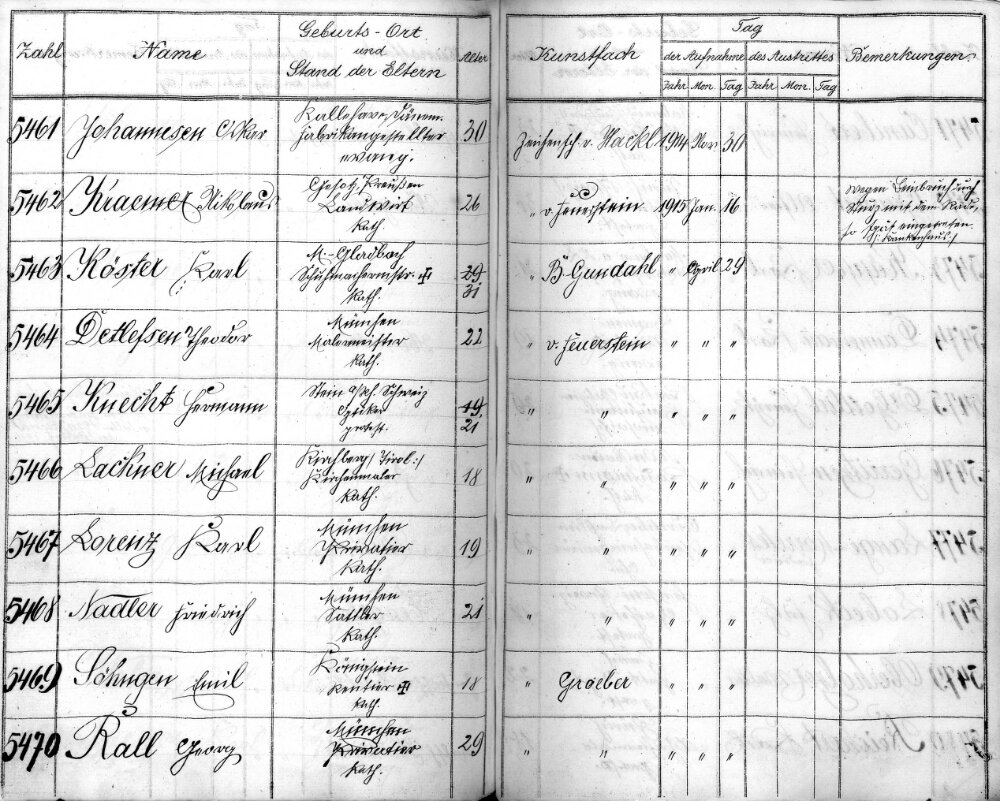 Zahl Name Geburts-Ort und Stand der Eltern Alter Kunstfach Tag der Aufnahme des Austrittes Bemerkungen
Jahr Mon Tag Jahr Mon. Tag
5461 Johannesen 30 Zeichensch. v. Hackl 1914 Nov 30
Fabrikangestellter
evang.
5462 Kraemer Niklaus Landwirt 26 " v. Feuerstein 1915 Jan. 16 wegen Beinbruch
Kath. Sturz mit dem Rade,
so spät eingetreten
/: Krankenhaus :/
5463 Köster Karl M.-Gladbach 29 " B. Gundahl " April 29
Schuhmachermstr. ✠ 31
Kath.
5464 Detlefsen Theodor München 22 " v. Feuerstein " " "
Malermeister
Kath.
5465 Knecht Hermann Stein a/Rh. Schweiz 19 " " " " "
Optiker 21
protest.
5466 Lackner Michael Kirchberg /Tirol:/ 18 " " " " "
Kirchenmaler
Kath.
5467 Lorenz Karl München 19 " " " " "
Privatier
Kath.
5468 Nadler Friedrich München 21 " " " " "
Sattler
Kath.
5469 Söhngen Emil Königstein 18 " Groeber " " "
Rentier ✠
Kath.
5470 Rall Georg München 29 " " " " "
Privatier
Kath.